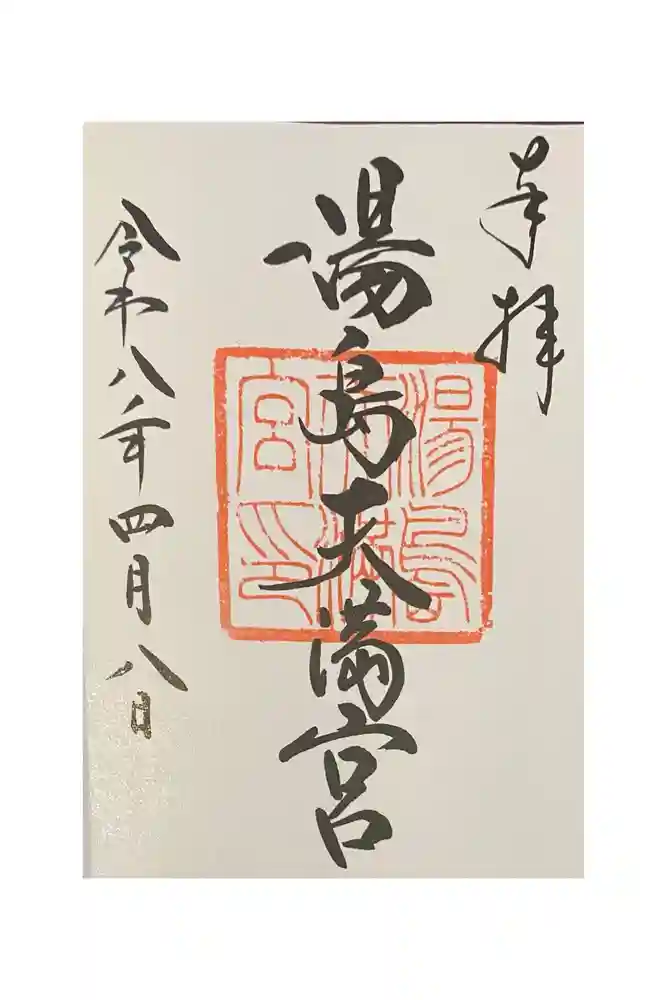 奉拝
湯島天満宮
湯島天満宮印
令和八年四月八日